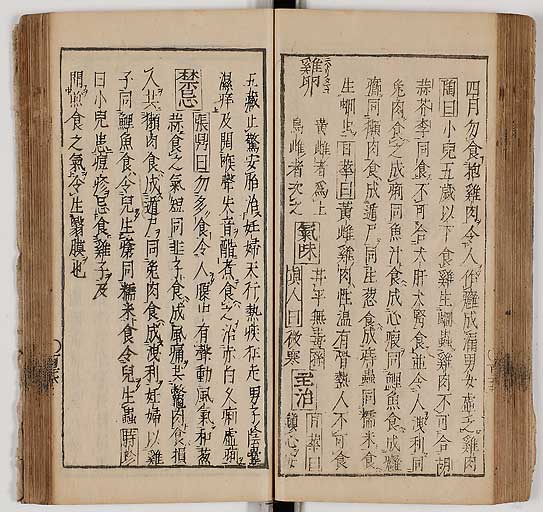 四月勿食抱雞肉令人作癰成漏男女虛乏雞肉
陶曰小兒五歲以下食雞生蛔蟲雞肉不可合胡
蒜芥李同食不可合犬肝犬腎食並令人洩利同
兎肉食之成痢同魚汁食成心瘕同鯉魚食成癰
癤同獺肉食成遁尸同生葱食成痔蟲同糯米食
生蛔虫日華曰黃雌雞肉性溫有骨熱人不可食
雞卵
黃雌者爲上
烏雌者次之
氣味
甘平無毒
人曰微寒
主治
日華曰
鎮心安
五臟止驚安胎治妊婦天行熱疾狂走男子陰囊
濕痒及開喉聲失音醋煮食之治赤白久痢虛痢
禁忌
張鼎曰勿多食令人腹中有聲動風氣和葱
蒜食之氣短同韭子食成風痛共鼈肉食損
人共獺肉食成遁尸同兎肉食成洩利妊婦以雞
子同鯉魚食令兒生瘡同糯米食令兒生蟲時珍
曰小兒患痘疹忌食雞子及
聞煎食之氣令生翳膜也